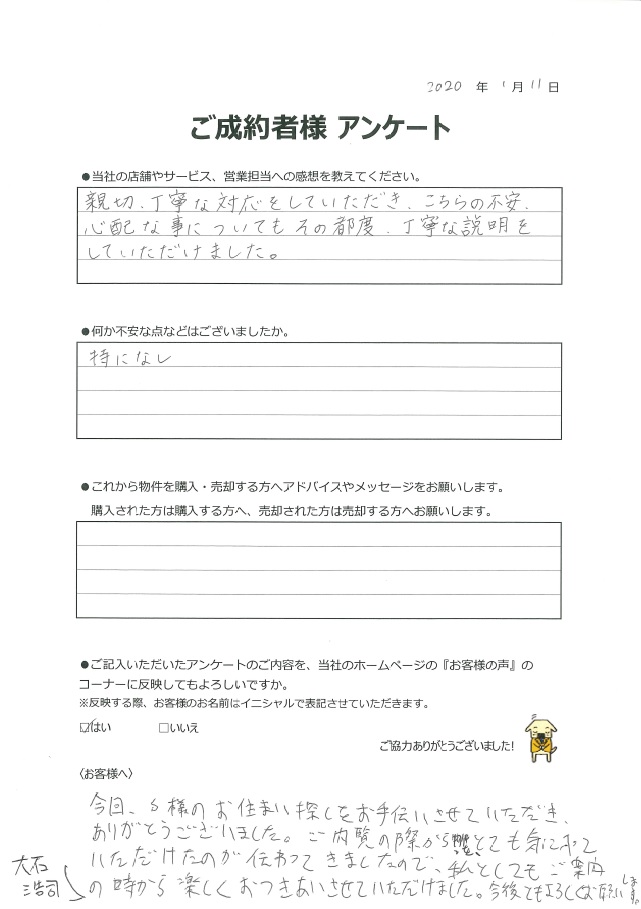 2020 年 1月 11日
ご成約者様 アンケート
●当社の店舗やサービス、営業担当への感想を教えてください。
親切、丁寧な対応をしていただき、こちらの不安、
心配な事についてもその都度、丁寧な説明を
していただけました。
●何か不安な点などはございましたか。
特になし
●これから物件を購入・売却する方へアドバイスやメッセージをお願いします。
購入された方は購入する方へ、売却された方は売却する方へお願いします。
●ご記入いただいたアンケートのご内容を、当社のホームページの『お客様の声』の
コーナーに反映してもよろしいですか。
※反映する際、お客様のお名前はイニシャルで表記させていただきます。
☑はい □いいえ
ご協力ありがとうございました!
〈お客様へ〉
今回、S様のお住まい探しをお手伝いさせていただき、
ありがとうございました。ご内覧の際から とても気に入って
いただけたのが伝わってきましたので、私としてもご案内
の時から楽しくおつきあいさせていただけました。今後ともよろしくお願いします。
大石
浩司